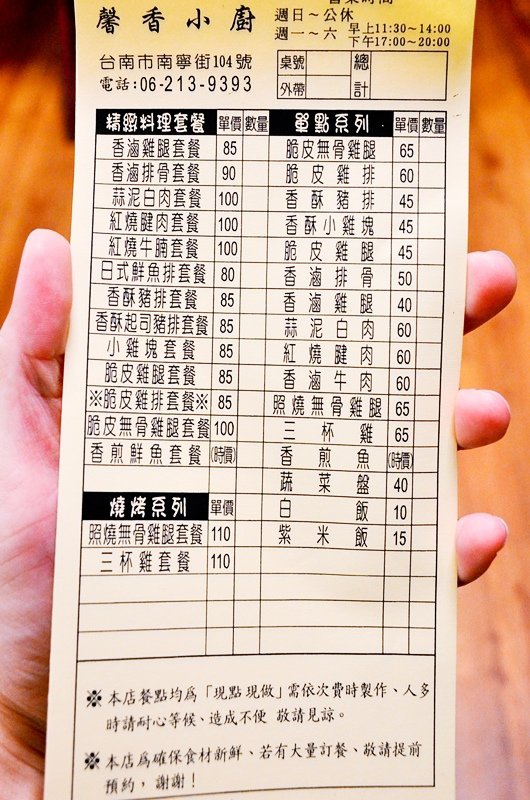 馨香小廚
週日～公休
週一～六 早上11:30～14:00
下午17:00～20:00
台南市南寧街104號
電話:06-213-9393
桌號 總計
外帶
精緻料理套餐 單價 數量
香滷雞腿套餐 85
香滷排骨套餐 90
蒜泥白肉套餐 100
紅燒腱肉套餐 100
紅燒牛腩套餐 100
日式鮮魚排套餐 80
香酥豬排套餐 85
香酥起司豬排套餐 85
小雞塊套餐 85
脆皮雞腿套餐 85
※脆皮雞排套餐※ 85
脆皮無骨雞腿套餐 100
香煎鮮魚套餐 (時價)
燒烤系列 單價
照燒無骨雞腿套餐 110
三杯雞套餐 110
單點系列 單價 數量
脆皮無骨雞腿 65
脆皮雞排 60
香酥豬排 45
香酥小雞塊 45
脆皮雞腿 45
香滷排骨 50
香滷雞腿 40
蒜泥白肉 60
紅燒腱肉 60
香滷牛肉 60
照燒無骨雞腿 65
三杯雞 65
香煎魚 (時價)
蔬菜盤 40
白飯 10
紫米飯 15
※本店餐點均為「現點現做」需依次費時製作、人多
時請耐心等候、造成不便 敬請見諒。
※本店為確保食材新鮮、若有大量訂餐、敬請提前
預約，謝謝！